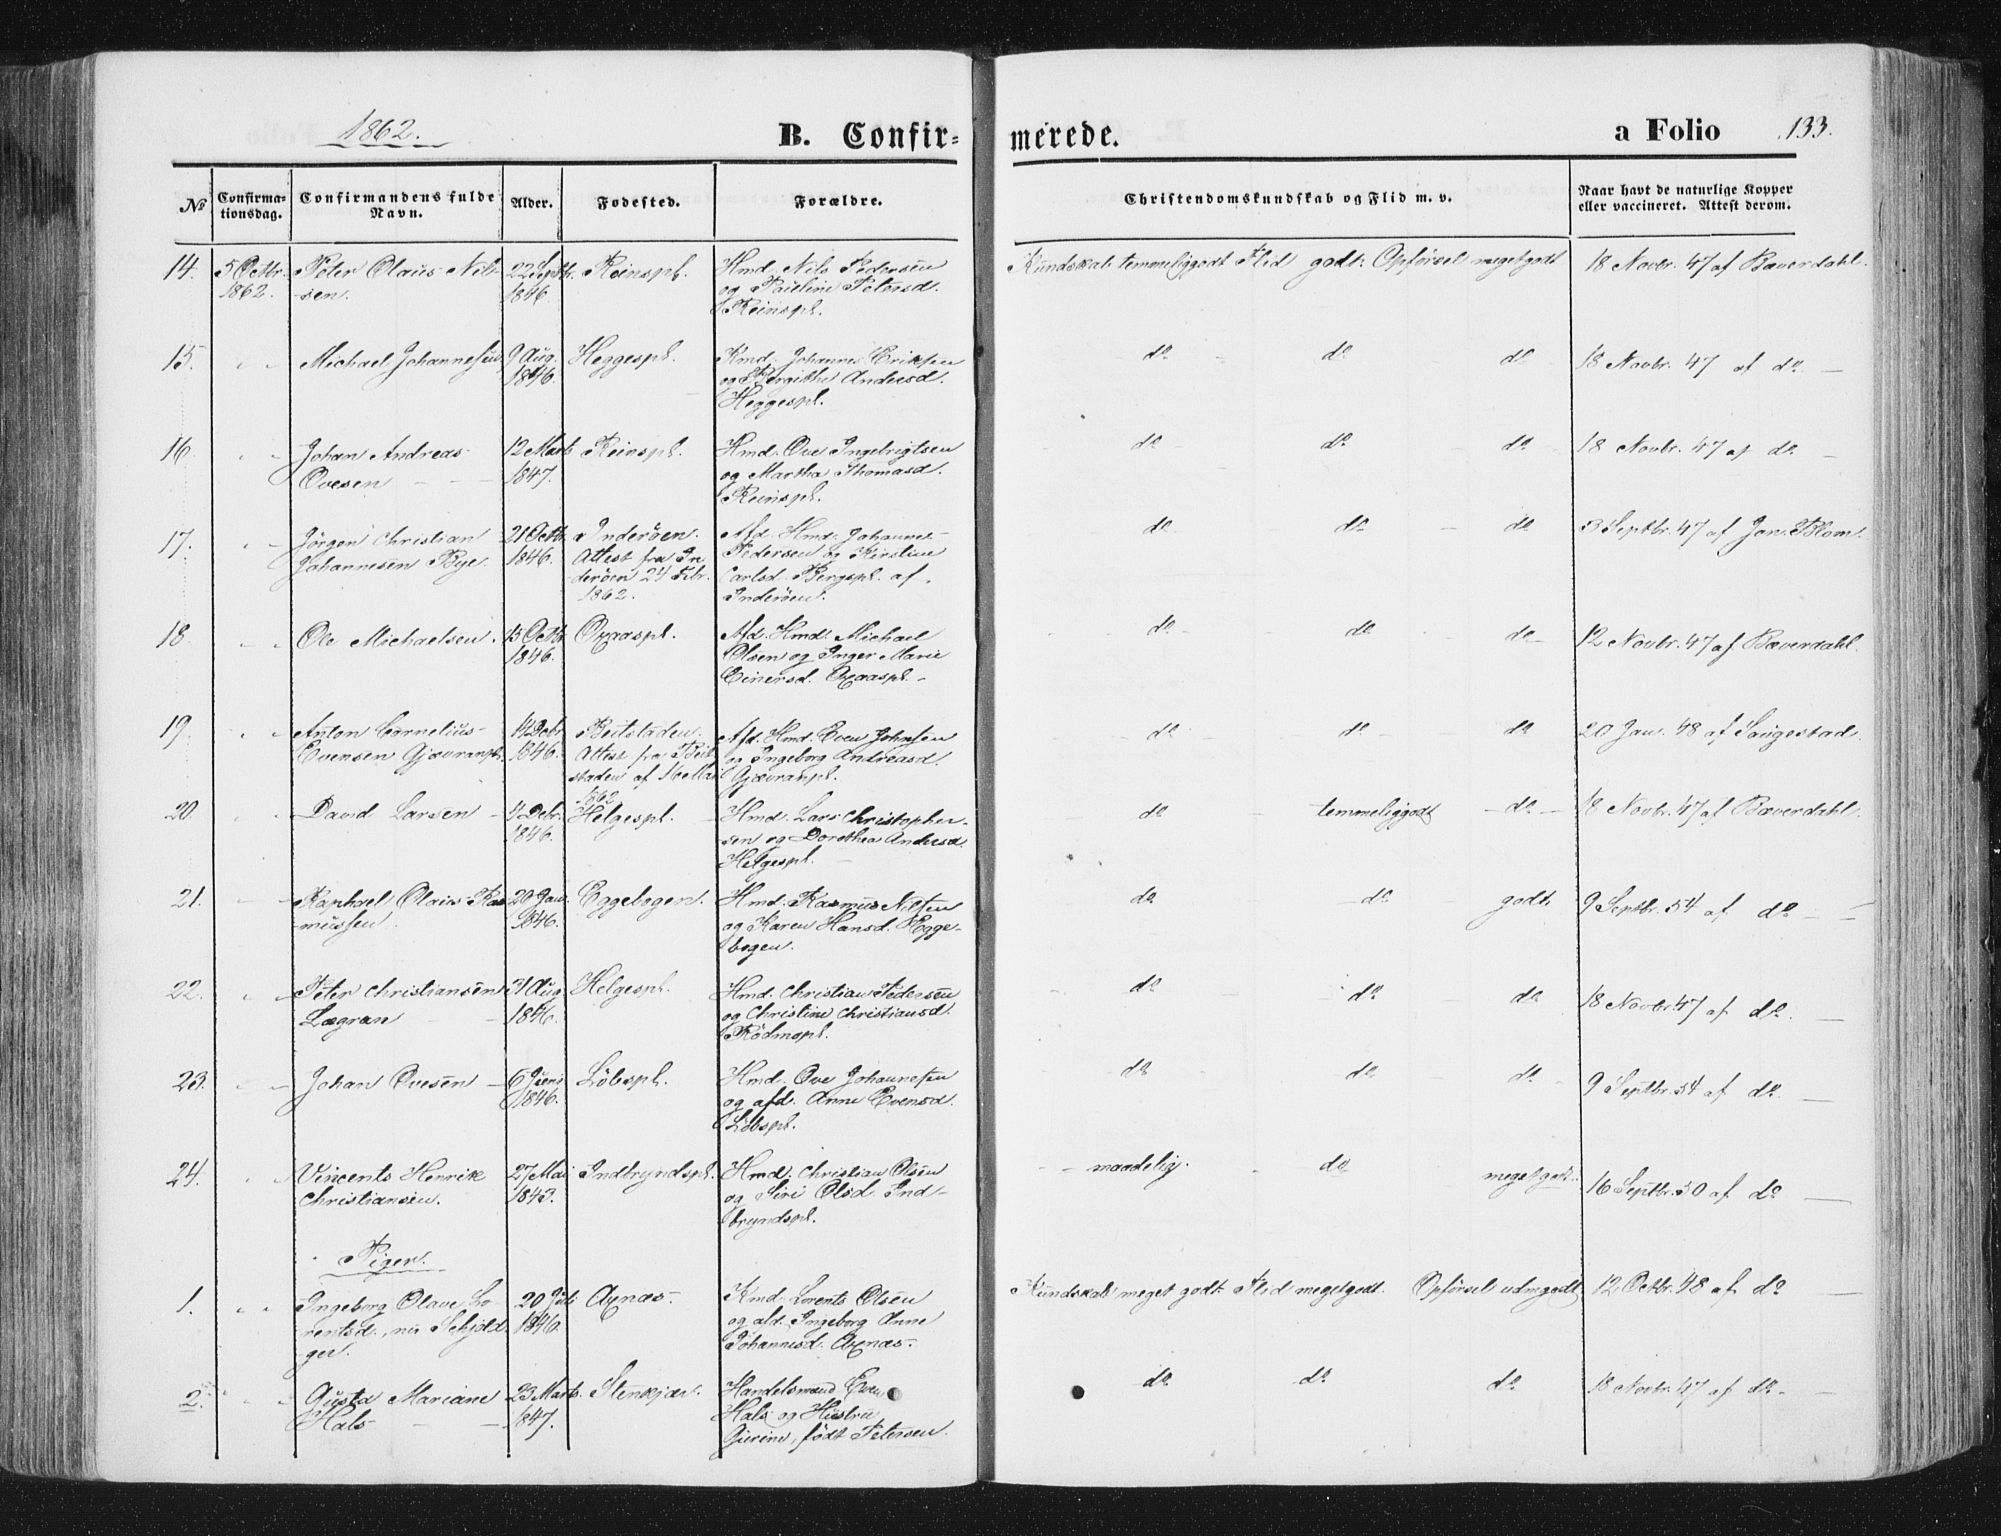 1862.
B. Confir-
merede.
a Folio 133.
№ Confirma-tionsdag. Confirmandens fulde Navn. Alder. Fødested. Forældre. Christendomskundskab og Flid m. v. Naar havt de naturlige Kopper eller vaccineret. Attest derom.
14. 5 Octbr. Peter Olaus Nils- 22 Septbr. Reinspl. Hmd. Nils Pedersen Kundskab temmeliggodt Flid godt. Opførsel megetgodt 18 Novbr. 47 af Bæverdahl.
1862. -sen. 1846. og Pauline Petersd.
Reinspl.
15. " " Michael Johannesen 9 Aug. Heggespl. Hmd. Johannes Eriksen do do do 18 Novbr. 47 af do
1846. og Bergitha Andersd.
Heggespl.
16 " Johan Andreas 12 Marts Reinspl. Hmd. Ove Ingebrigtsen do do do 18 Novbr. 47 af do
Ovesen 1847. og Martha Thomasd.
Reinspl.
17. " " Jörgen Christian 21 Octbr. Inderöen. Afd. Hmd. Johannes do do do 3 Septbr. 47 af Jan Blom.
Johannesen Bye. 1846. Attest fra In- Pedersen og Kirstine
deröen 24 Febr. Carlsd. Bergspl. af
1862. Inderöen.
18. " " Ole Michaelsen. 15 Octbr. Oxaaspl. Afd. Hmd. Michael do do do 12 Novbr. 47 af Bæverdahl.
1846. Olsen og Inger Marie
Einersd. Oxaaspl.
19. " " Anton Cornelius 14 Decbr. Beitstaden. Afd. Hmd. Even Johnsen do do do 20 Jan. 48 af Saugestad.
Evensen Gjævranpl. 1846. Attest fra Beit- og Ingeborg Andreasd.
staden af 16 Mai Gjævranpl.
1862
20. " " David Larsen 4 Decbr. Helgespl. Hmd. Lars Christopher- do temmeliggodt do 18 Novbr. 47 af Bæverdahl.
1846. sen og Dorothea Andersd.
Helgespl.
21. " " Raphael Olaus Ras- 20 Jan. Eggebogen. Hmd. Rasmus Nilsen do do godt 9 Septbr. 54 af do
mussen 1846. og Karen Hansd. Egge-
bogen.
22. " " Peter Christiansen 31 Aug. Helgespl. Hmd. Christian Pedersen do do do 18 Novbr. 47 af do.
Lægran 1846. og Christine Christiansd.
Rödmspl.
23. " " Johan Ovesen 6 Juni Löbspl. Hmd. Ove Johannesen do do do 9 Septbr. 54 af do.
1846. og afd. Anne Evensd.
Löbspl.
24. " " Vincents Henrik 27 Mai Indbryndspl. Hmd. Christian Olsen maadelig. do megetgodt. 16 Septbr. 50 af do
Christiansen. 1843. og Siri Olsd. Ind-
bryndspl.
Piger.
1. " " Ingeborg Olave Lo- 20 Juli Axnæs. Kmd. Lorents Olsen Kundskab meget godt Flid megetgodt. Opførsel udmgodt 12 Octbr. 48 af do
rentsd., nu Schjöld- 1846. og afd. Ingeborg Anne
ger. Johannesd. Axnæs.
2. " " Gusta Mariane 23 Marts Stenkjær. Handelsmand Even do do do 18 Novbr. 47 af do
Hals 1847. Hals og Hustru
Gurine, født Petersen.